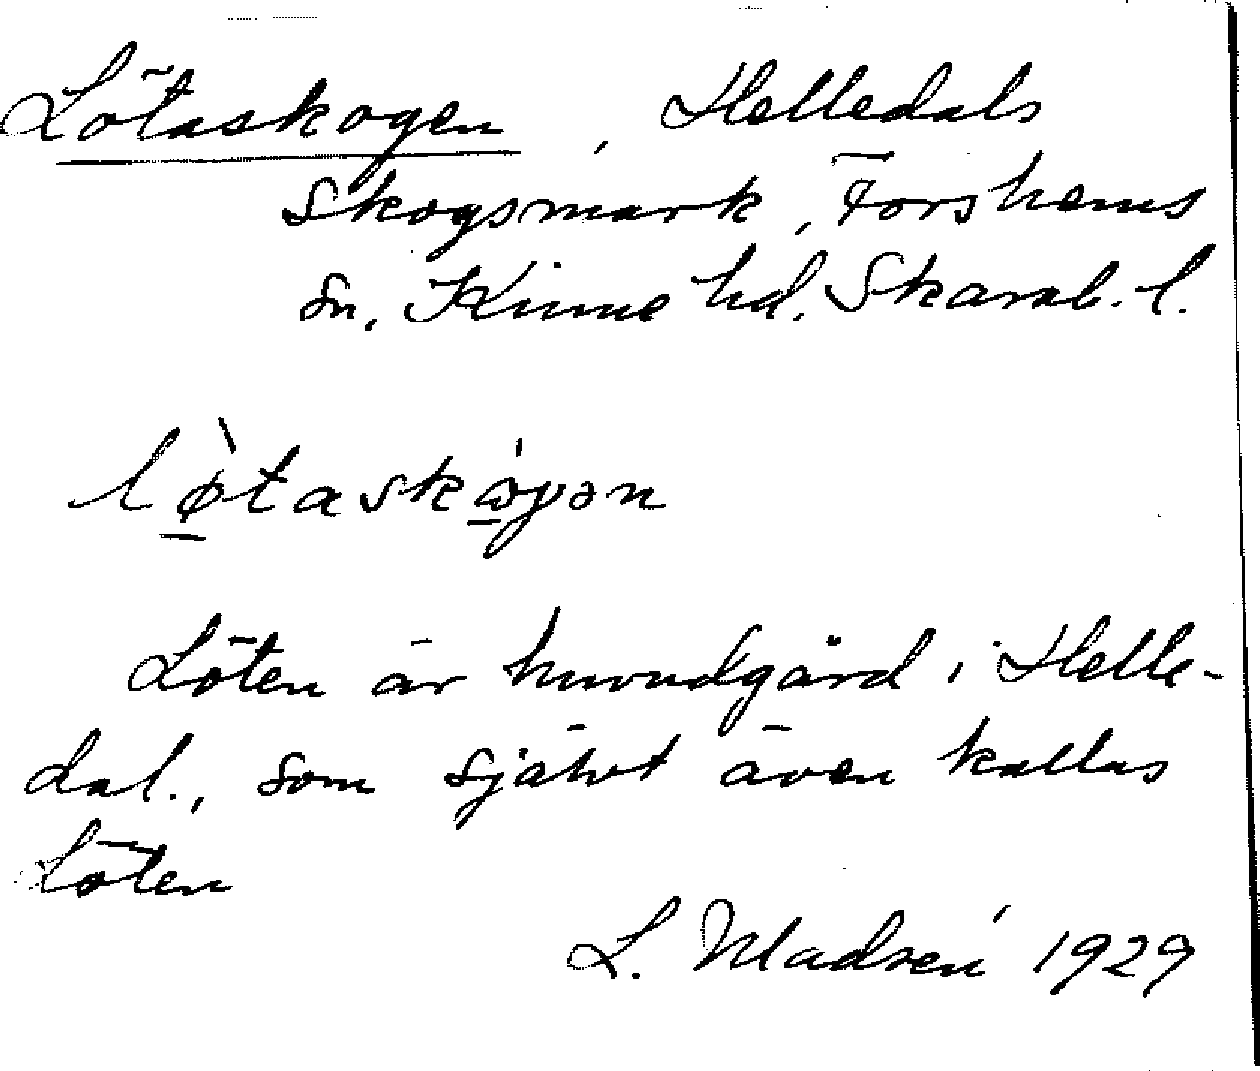 Lötaskogen, Helledals
skogsmark, Forshems
sn. Kinne hd. Skarab. l.
lø̀taskɷ́gən
Löten är huvudgård i Helle-
dal., som självt även kallas
Löten
L. Madsén 1929